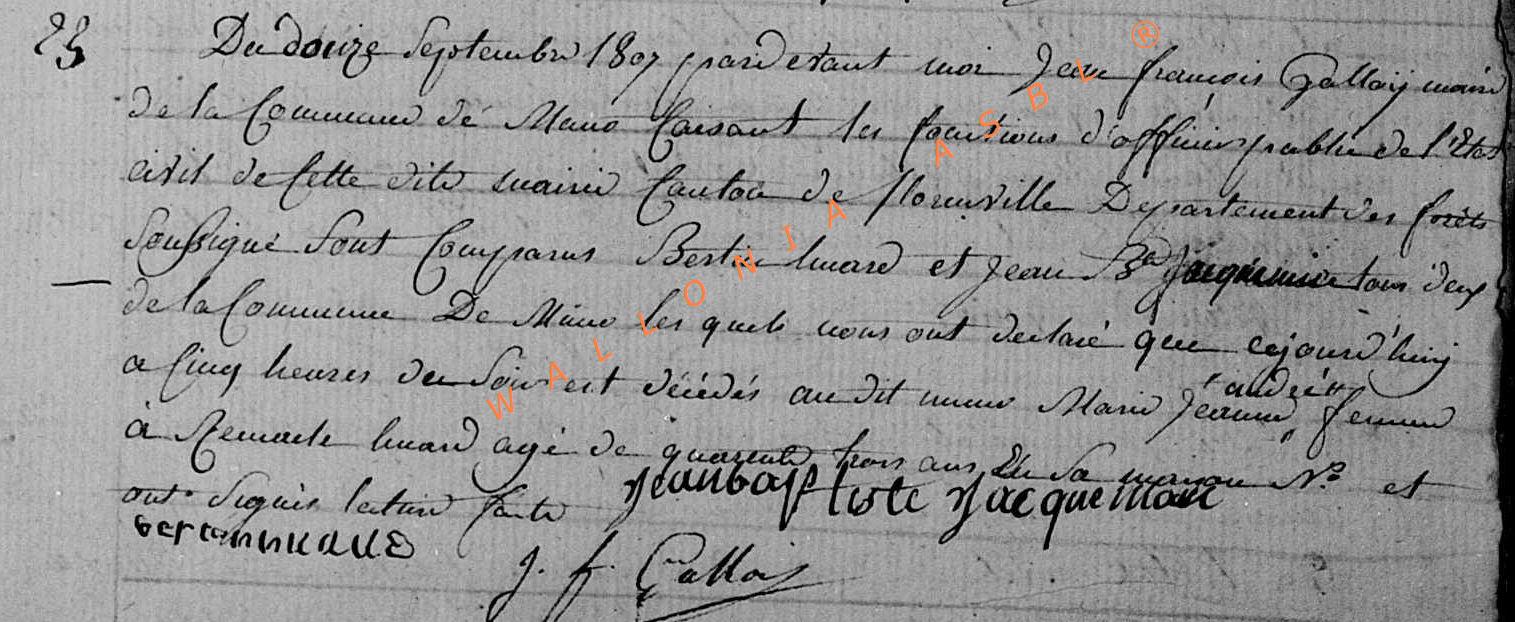 23
Du douze Septembre 1807 pardevant moi Jean françois Gallois maire
de la Commune de Muno faisant les fonctions d'officier public de l'Etat
civil de Cette dite mairie Canton de florenville Departement des forêts
Soussigné Sont Comparus Bertin huard et Jean Bte Jacquemin tous deux
de la Commune De Muno les quels nous ont declaré que cejourd'huy
a Cinq heures du Soir est décédés au dit muno Marie Jeanne andrétt femme
à Remacle huard agé de quarante trois ans En Sa maison No et
ont Signés lecture faite jeanbaptiste Jacquemin
J. f. Gallois
WALLONIA ASBL ®